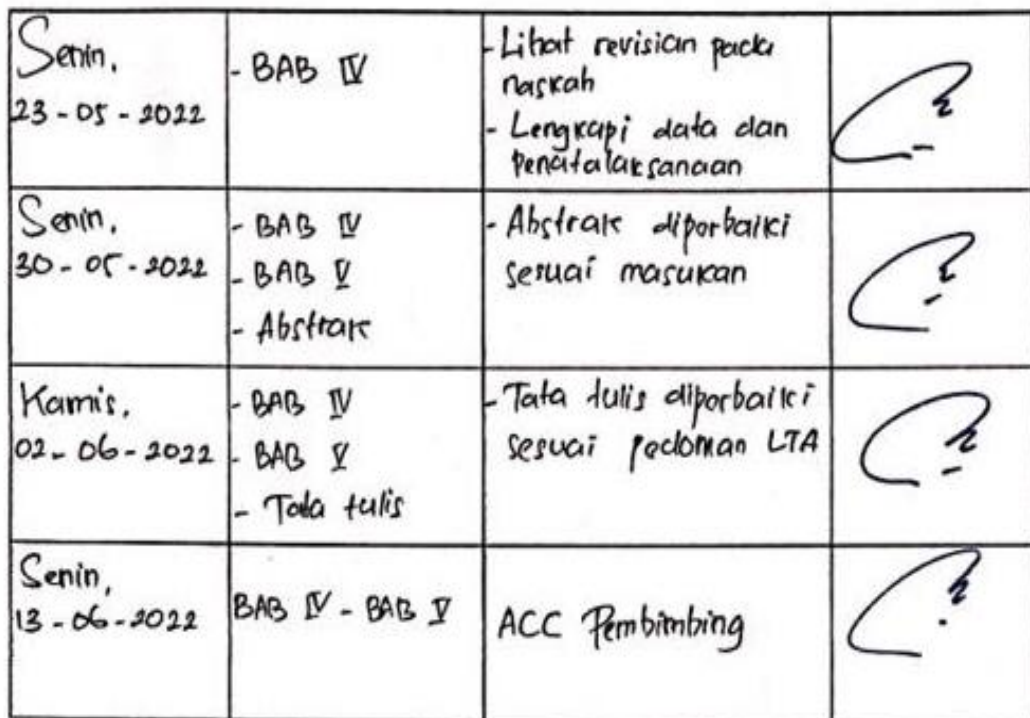 Senin,
23-05-2022
- BAB IV
- Lihat revisian pada
naskah
- Lengkapi data dan
penatalaksanaan
Senin,
30-05-2022
- BAB IV
- BAB V
- Abstrak
- Abstrak diperbaiki
sesuai masukan
Kamis,
02-06-2022
- BAB IV
- BAB V
- Tata tulis
- Tata tulis diperbaiki
sesuai pedoman LTA
Senin,
13-06-2022
BAB IV - BAB V
ACC Pembimbing